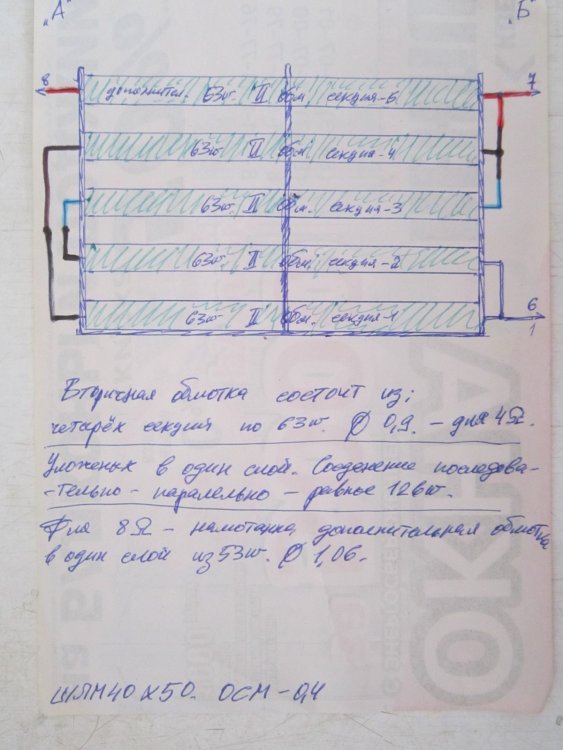 "А" "Б"
8 дополнител. 63в. II обм. секция-5 7
63в. II обм. секция-4
63в. II обм. секция-3
63в. II обм. секция-2
63в. II обм. секция-1 6
1
Вторичная обмотка состоит из;
четырёх секций по 63в. Ø 0,9. – для 4Ω.
Уложеных в один слой. Соеденение последова-
-тельно - паралельно – равное 126в.
Для 8Ω – намотанна дополнительная обмотка
в один слой из 53в. Ø 1,06.
40х50. ОСМ-0,4
ОКНА